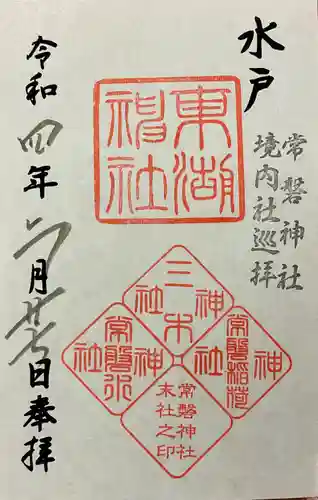 水戸
常磐神社
境内社巡拝
東湖神社
三木神社
常磐稲荷神社
常磐水神社
常磐神社
末社之印
令和四年六月廿七日奉拝